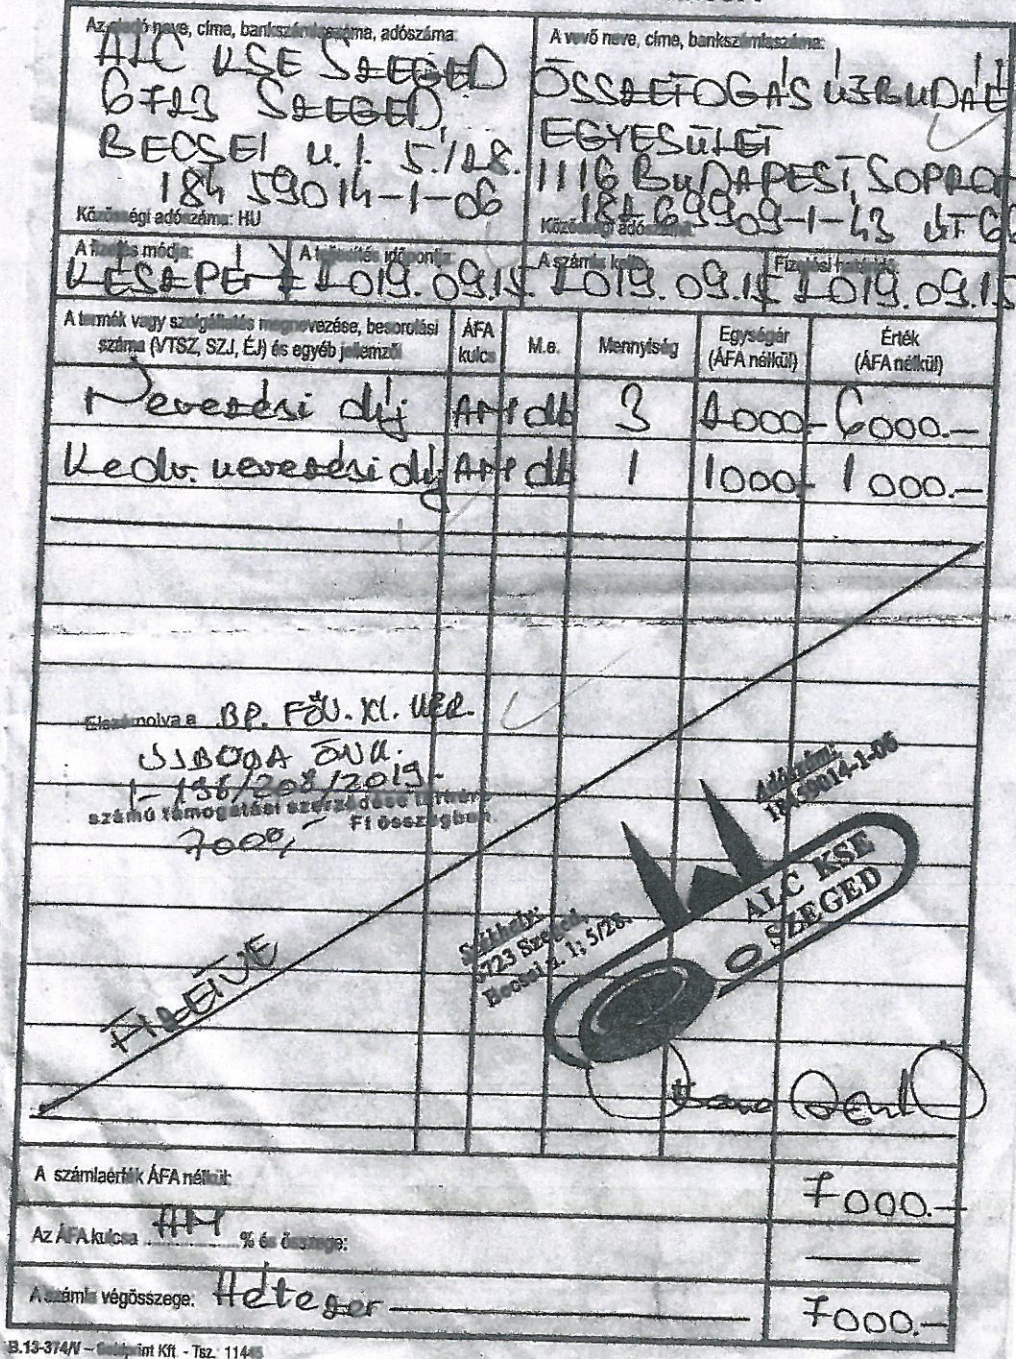 Az eladó neve, címe, bankszámlaszáma, adószáma:
ALC KSE SZEGED
6723 SZEGED,
BECSEI u. 1. 5/28.
18459014-1-06
Közösségi adószáma: HU
A vevő neve, címe, bankszámlaszáma:
ÖSSZEFOGÁS ÚJBUDÁÉ
EGYESÜLET
1116 BUDAPEST, SOPRO
Közösségi adószáma:
-1-43 ÚT 6
A fizetés módja:
KÉSZPÉNZ
A teljesítés időpontja:
2019.09.15.
A számla kelte:
2019.09.15
Fizetési határidő:
2019.09.15
A termék vagy szolgáltatás megnevezése, besorolási száma (VTSZ, SZJ, ÉJ) és egyéb jellemzői
ÁFA kulcs
M.e.
Mennyiség
Egységár (ÁFA nélkül)
Érték (ÁFA nélkül)
Nevezési díj AM db 3 2000- 6000.-
Kedv. nevezési díj AM db 1 1000- 1000.-
Elszámolva a BP. FŐV. XI. KER.
ÚJBUDA ÖNK.
számú támogatási szerződése terhére
7000,- Ft összegben.
FIZETVE
Adószám:
18459014-1-06
ALC KSE
SZEGED
Székhely:
6723 Szeged,
Becsei u. 1; 5/28.
A számlaérték ÁFA nélkül: 7000.-
Az ÁFA kulcsa AM % és összege: —
A számla végösszege: Hétezer 7000.-
B.13-374/V – Kft. - Tsz.